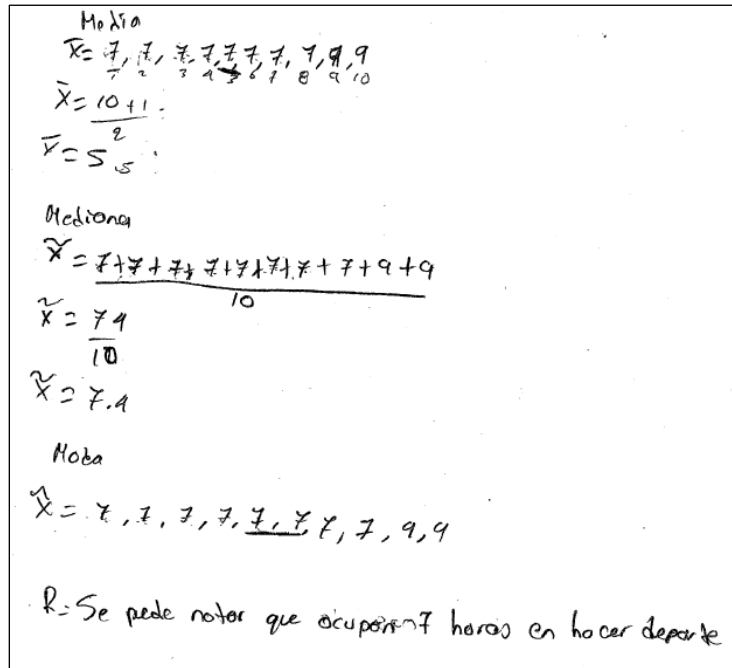 Media
x̄= 7, 7, 7, 7, 7, 7, 7, 7, 9, 9
1 2 3 4 5 6 7 8 9 10
x̄= 10+1
2
x̄= 5.5
Mediana
x̃= 7+7+7+7+7+7+7+7+9+9
10
x̃= 74
10
x̃= 7.4
Moda
x̂= 7, 7, 7, 7, 7, 7, 7, 7, 9, 9
R= Se pede notar que ocuparon 7 horas en hacer deporte